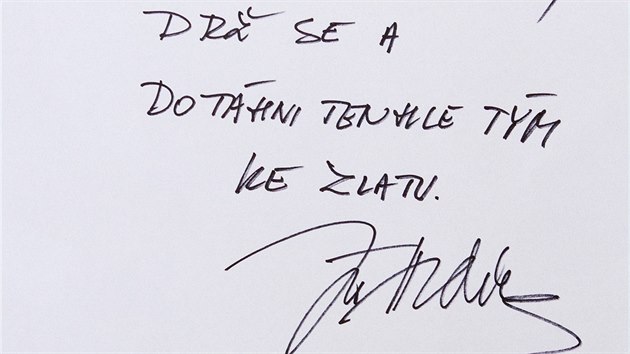 DRŽ SE A
DOTÁHNI TENHLE TÝM
KE ZLATU.